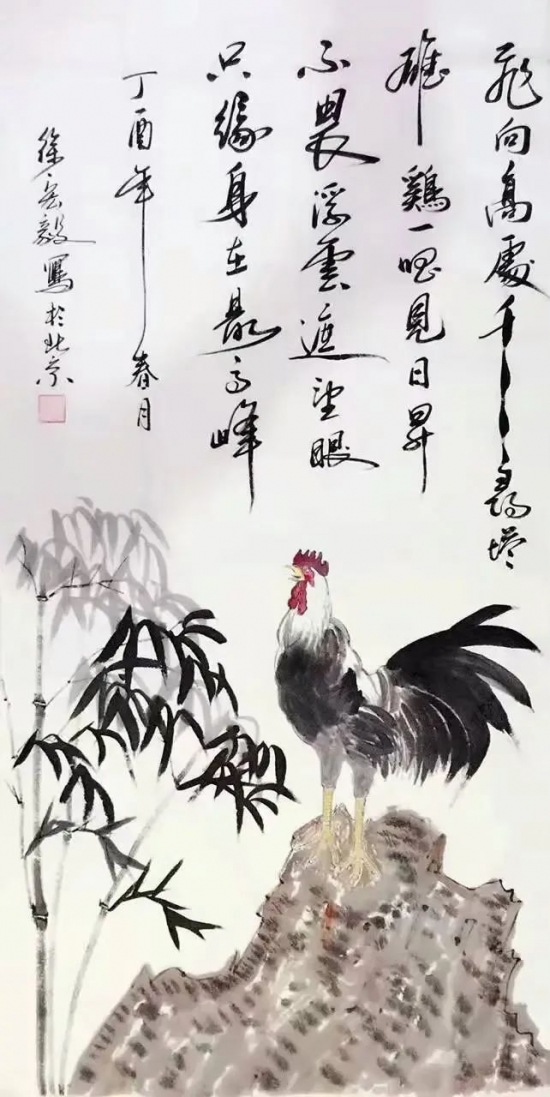 飛向高處千尋塔
雄鷄一唱見日昇
不畏浮雲遮望眼
只緣身在最高峰
丁酉年春月
徐毅寫於北京